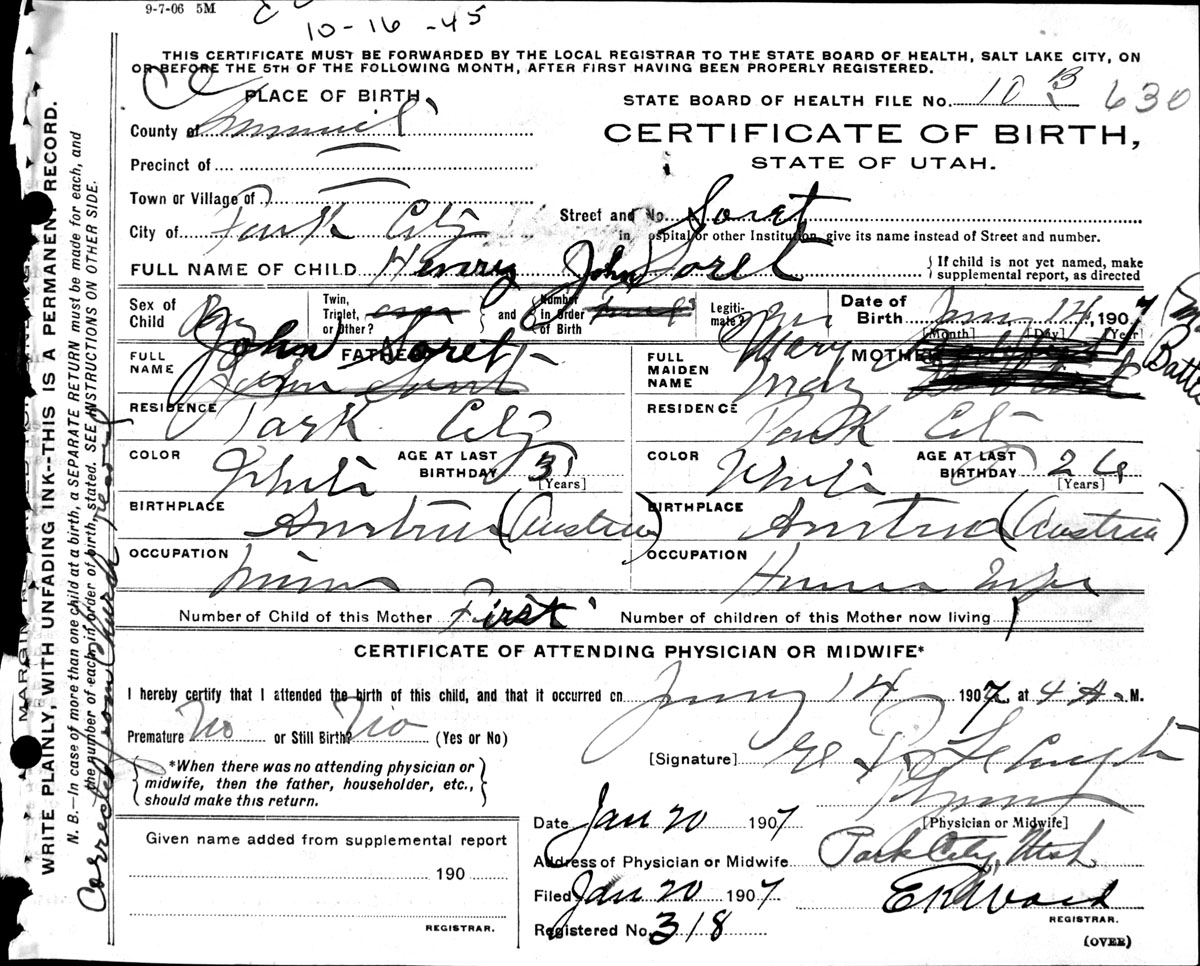 9-7-06 5M
10-16-45
THIS CERTIFICATE MUST BE FORWARDED BY THE LOCAL REGISTRAR TO THE STATE BOARD OF HEALTH, SALT LAKE CITY, ON
OR BEFORE THE 5TH OF THE FOLLOWING MONTH, AFTER FIRST HAVING BEEN PROPERLY REGISTERED.
PLACE OF BIRTH
STATE BOARD OF HEALTH FILE No. 10 B 630
County of Summit
CERTIFICATE OF BIRTH,
STATE OF UTAH.
Precinct of
Town or Village of
Street and No. Soret
City of Park City
in hospital or other Institution, give its name instead of Street and number.
FULL NAME OF CHILD Henry John Soret
If child is not yet named, make
supplemental report, as directed
Sex of Child Boy
Twin, Triplet, or Other?
and
Number in Order of Birth
Legiti-mate? Yes
Date of Birth Jan 14, 1907
[Month] [Day] [Year]
FULL NAME FATHER John Soret
FULL MAIDEN NAME MOTHER Mary
RESIDENCE Park City
RESIDENCE Park City
COLOR White AGE AT LAST BIRTHDAY 31 [Years]
COLOR White AGE AT LAST BIRTHDAY 26 [Years]
BIRTHPLACE Austria (Austria)
BIRTHPLACE Austria (Austria)
OCCUPATION Miner
OCCUPATION House Wife
Number of Child of this Mother First
Number of children of this Mother now living 1
CERTIFICATE OF ATTENDING PHYSICIAN OR MIDWIFE*
I hereby certify that I attended the birth of this child, and that it occurred on January 14 1907, at 4 A. M.
Premature No or Still Birth? No (Yes or No)
[Signature]
*When there was no attending physician or
midwife, then the father, householder, etc.,
should make this return.
[Physician or Midwife]
Date Jan 20 1907
Given name added from supplemental report
Address of Physician or Midwife Park City, Utah
190
Filed Jan 20 1907
E R Ward
REGISTRAR.
REGISTRAR.
Registered No. 318
(OVER)
WRITE PLAINLY, WITH UNFADING INK--THIS IS A PERMANENT RECORD.
N. B.—In case of more than one child at a birth, a SEPARATE RETURN must be made for each, and
the number of each, in order of birth, stated. SEE INSTRUCTIONS ON OTHER SIDE.
Corrected from church record